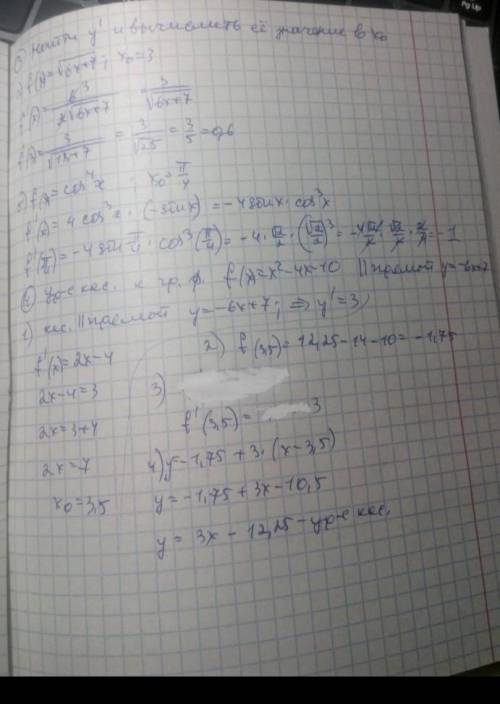 ① Найти y' и вычислить её значение в x₀
f(x)=√6x+7; x₀=3
f'(x)= 6 3 / 2√6x+7 3/√6x+7
f'(x)= 3/√18+7 = 3/√25 = 3/5 = 0,6
f(x)=cos⁴x ; x₀= π/4
f'(x)=4 cos³x · (-sin x) = -4 sin x · cos³x
f'(π/4)= -4 sin π/4 · cos³(π/4)= -4 · √2/2 · (√2/2)³ = -4√2/2 · √2/2 · 2/4 = -1
② ур-е кас. к гр. ф. f(x)=x²-4x-10 || прямой y=-6x+7
1) кас. || прямой y=-6x+7; ⇒ y'=3
f'(x)=2x-4
2) f(3,5)=12,25-14-10=-1,75
2x-4=3
3)
2x=3+4
f'(3,5)= 3
2x=7
4) y=-1,75+3·(x-3,5)
x₀=3,5
y=-1,75+3x-10,5
y= 3x-12,25 - ур-е кас.